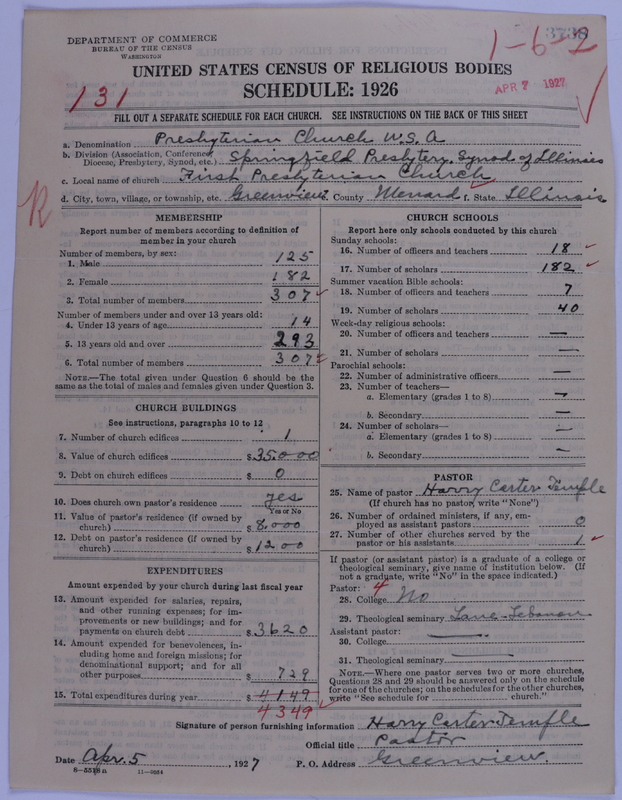 DEPARTMENT OF COMMERCE
BUREAU OF THE CENSUS
WASHINGTON
3738
1-6-2
APR 7 1927
131
UNITED STATES CENSUS OF RELIGIOUS BODIES
SCHEDULE: 1926
FILL OUT A SEPARATE SCHEDULE FOR EACH CHURCH. SEE INSTRUCTIONS ON THE BACK OF THIS SHEET
a. Denomination Presbyterian Church U.S.A
b. Division (Association, Conference, Diocese, Presbytery, Synod, etc.) Springfield Presbytery. Synod of Illinois
c. Local name of church First Presbyterian Church
d. City, town, village, or township, etc. Greenview e. County Menard f. State Illinois
R
MEMBERSHIP
Report number of members according to definition of
member in your church
Number of members, by sex:
1. Male 125
2. Female 182
3. Total number of members 307
Number of members under and over 13 years old:
4. Under 13 years of age 14
5. 13 years old and over 293
6. Total number of members 307
NOTE.—The total given under Question 6 should be the
same as the total of males and females given under Question 3.
CHURCH BUILDINGS
See instructions, paragraphs 10 to 12
7. Number of church edifices 1
8. Value of church edifices $35000
9. Debt on church edifices $ 0
10. Does church own pastor's residence yes
Yes or No
11. Value of pastor's residence (if owned by
church) $8000
12. Debt on pastor's residence (if owned by
church) $1200
EXPENDITURES
Amount expended by your church during last fiscal year
13. Amount expended for salaries, repairs,
and other running expenses; for im-
provements or new buildings; and for
payments on church debt $3620
14. Amount expended for benevolences, in-
cluding home and foreign missions; for
denominational support; and for all
other purposes $ 729
15. Total expenditures during year $4149
4349
CHURCH SCHOOLS
Report here only schools conducted by this church
Sunday schools:
16. Number of officers and teachers 18
17. Number of scholars 182
Summer vacation Bible schools:
18. Number of officers and teachers 7
19. Number of scholars 40
Week-day religious schools:
20. Number of officers and teachers —
21. Number of scholars —
Parochial schools:
22. Number of administrative officers —
23. Number of teachers—
a. Elementary (grades 1 to 8) —
b. Secondary —
24. Number of scholars—
a. Elementary (grades 1 to 8) —
b. Secondary —
PASTOR
25. Name of pastor Harry Carter Temple
(If church has no pastor, write "None")
26. Number of ordained ministers, if any, em-
ployed as assistant pastors 0
27. Number of other churches served by the
pastor or his assistants 1
If pastor (or assistant pastor) is a graduate of a college or
theological seminary, give name of institution below. (If
not a graduate, write "No" in the space indicated.)
Pastor: 4
28. College No
29. Theological seminary Lane-Lebanon
Assistant pastor:
30. College —
31. Theological seminary —
NOTE.—Where one pastor serves two or more churches,
Questions 28 and 29 should be answered only on the schedule
for one of the churches; on the schedules for the other churches,
write "See schedule for church."
Signature of person furnishing information Harry Carter Temple
Official title Pastor
Date Apr. 5, 1927 P. O. Address Greenview.
8-5518a 11-9354